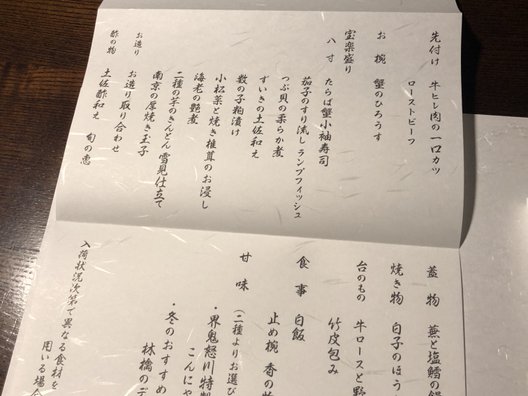 先付け 牛ヒレ肉の一口カツ
ローストビーフ
お椀 蟹のひろうす
宝楽盛り
八寸 たらば蟹小袖寿司
茄子のすり流し ランプフィッシュ
つぶ貝の柔らか煮
ずいきの土佐和え
数の子粕漬け
小松菜と焼き椎茸のお浸し
海老の艶煮
二種の芋のきんとん 雪見仕立て
南京の厚焼き玉子
お造り お造り取り合わせ
酢の物 土佐酢和え 旬の恵
蓋物 蕪と塩鱈の
焼き物 白子のほう
台のもの 牛ロースと野
竹皮包み
食事 白飯
止め椀 香の
甘味 (二種よりお選び
・界鬼怒川特製
こんにゃ
・冬のおすすめ
林檎のデ
入荷状況次第で異なる食材を
用いる場合